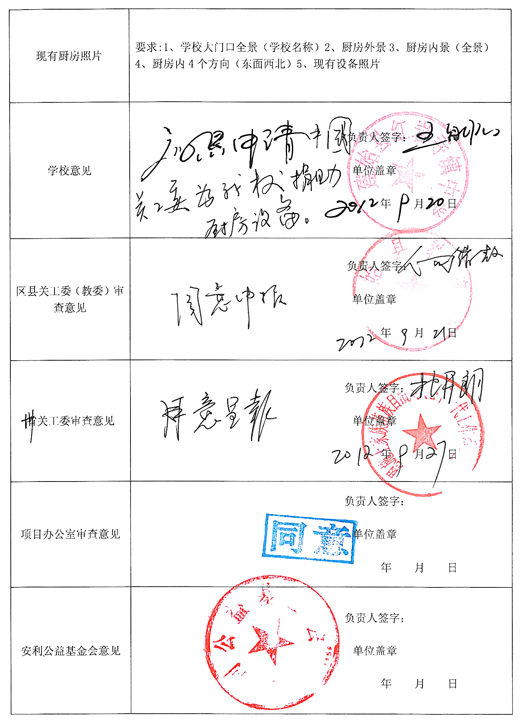 现有厨房照片
要求:1、学校大门口全景（学校名称）2、厨房外景 3、厨房内景（全景）
4、厨房内4个方向（东面西北）5、现有设备照片
学校意见
申请中国
关工委为我校捐助
厨房设备。
负责人签字:
单位盖章
2012年9月20日
区县关工委（教委）审
查意见
同意申报
负责人签字:
单位盖章
2012年9月21日
州
省关工委审查意见
同意呈报
负责人签字:
单位盖章
2012年9月27日
项目办公室审查意见
同意
负责人签字:
单位盖章
年 月 日
安利公益基金会意见
公益基
负责人签字:
单位盖章
年 月 日